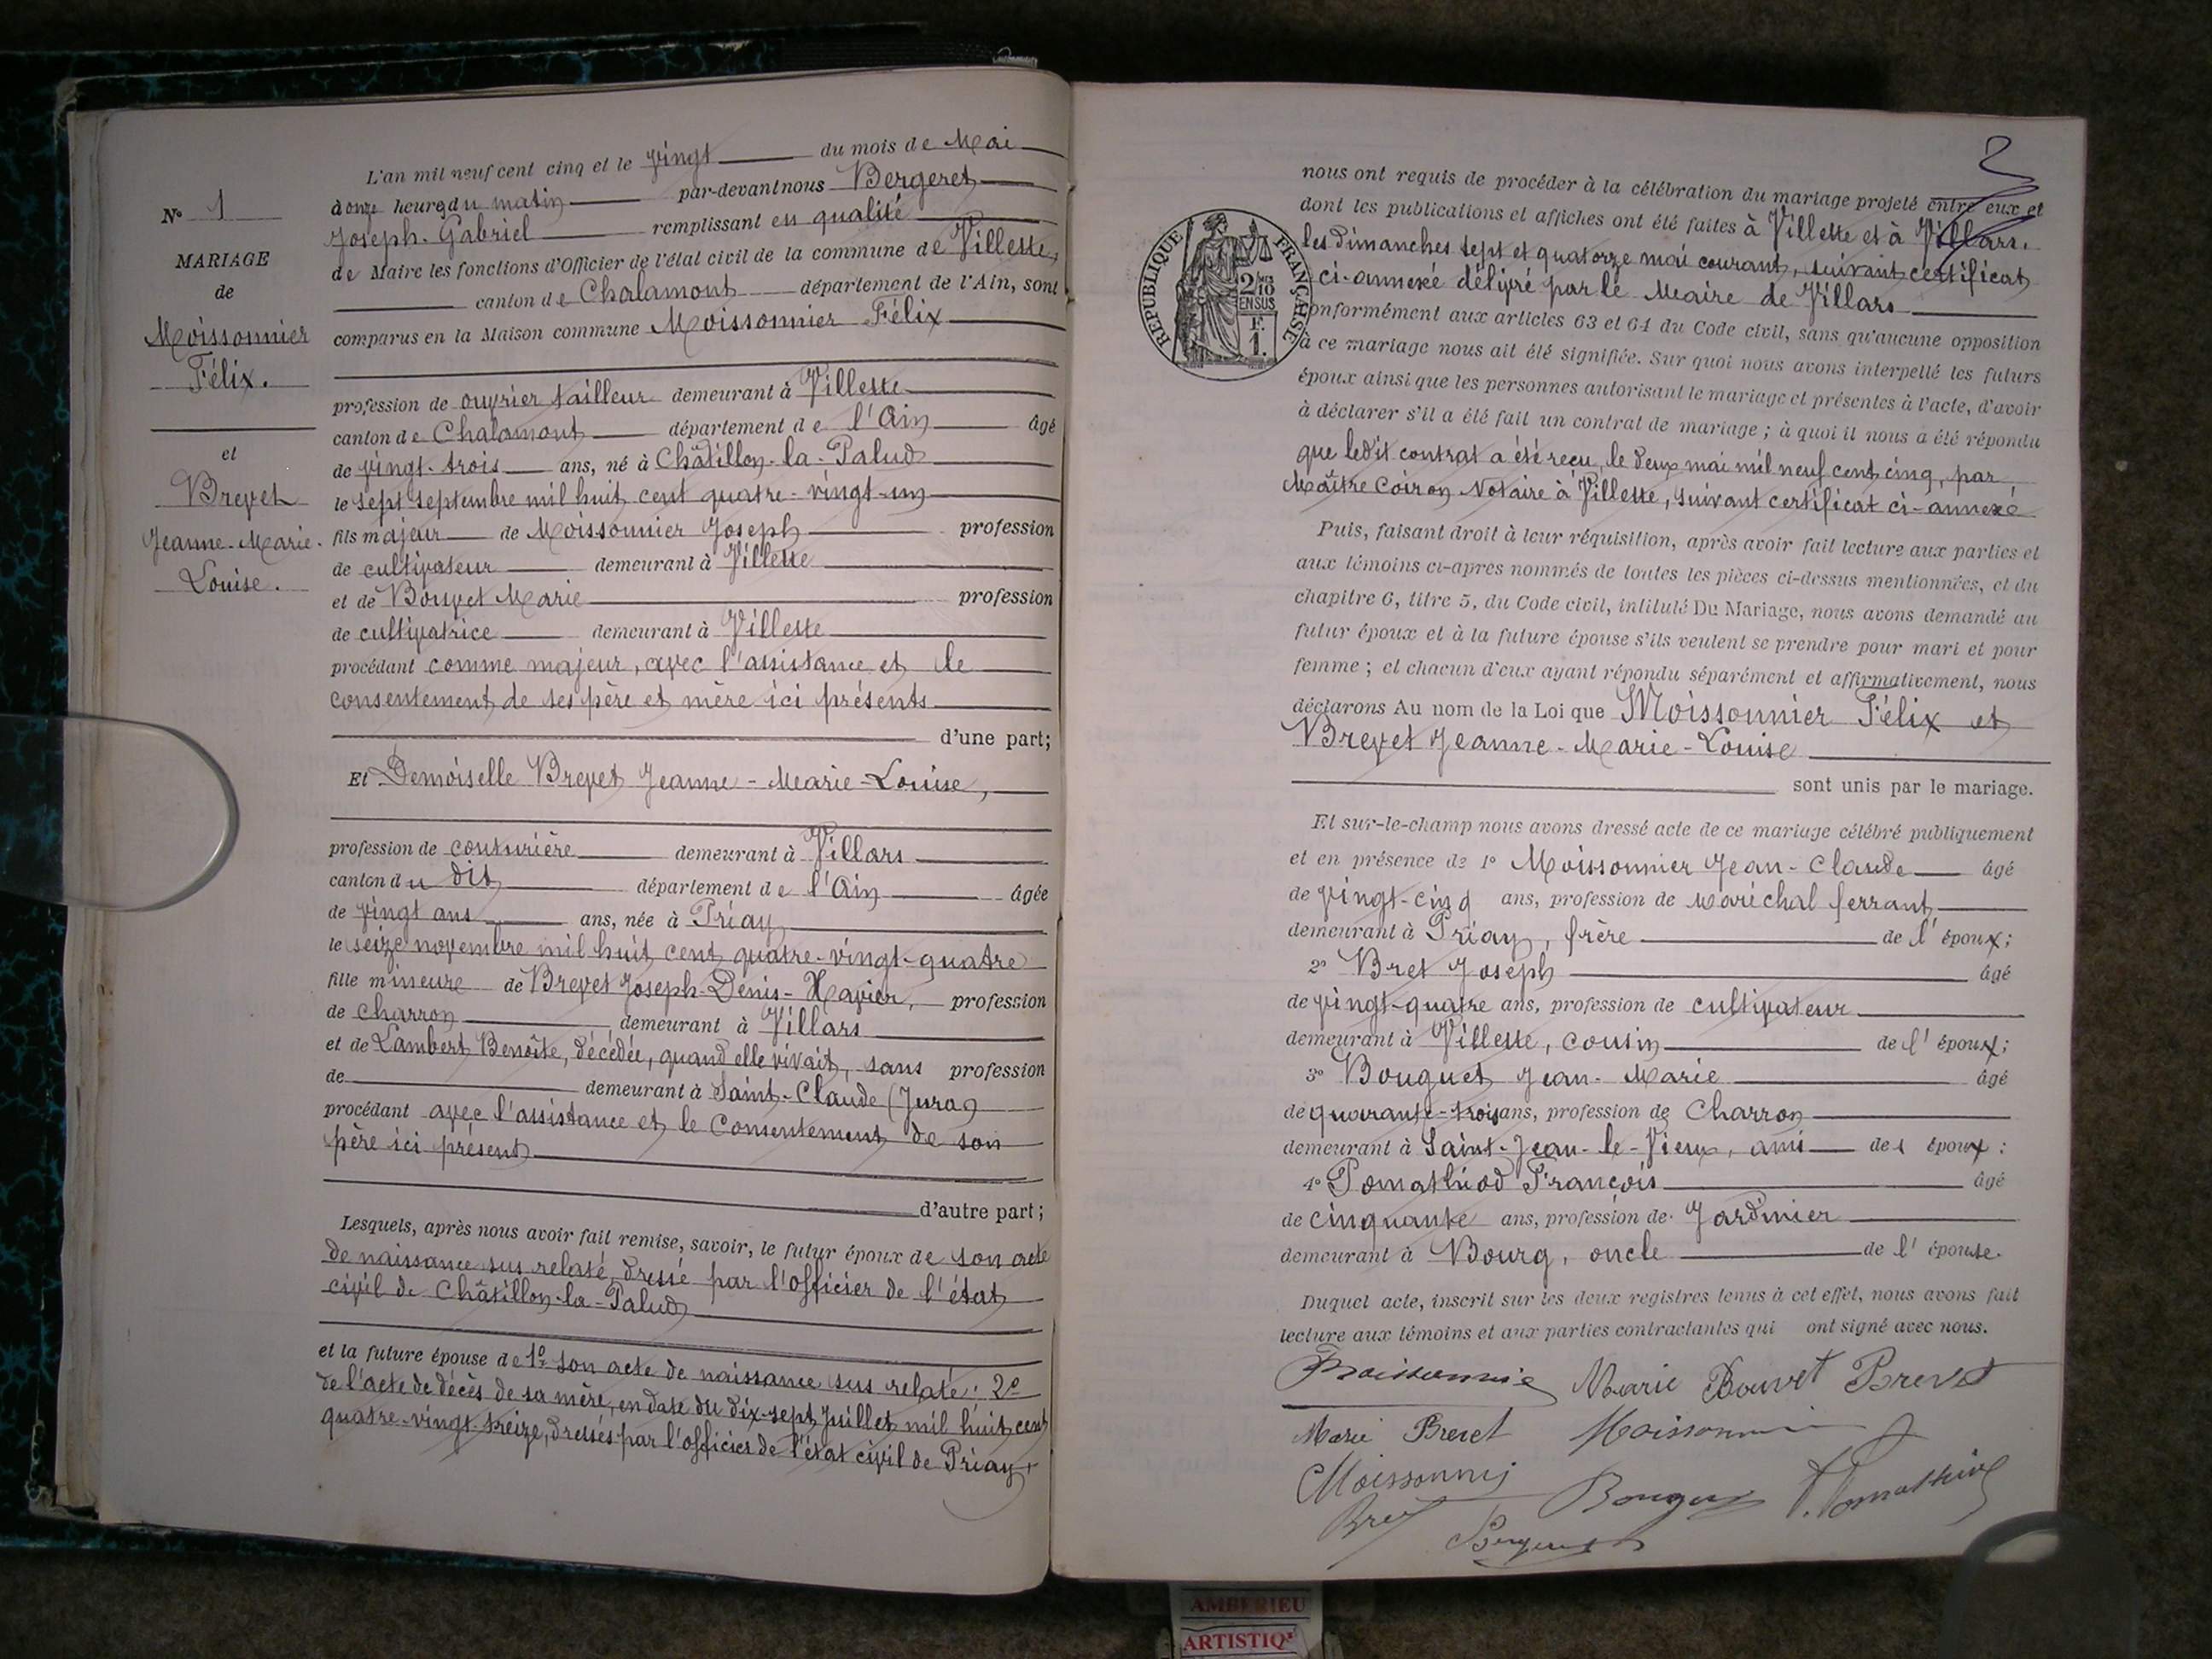 N° 1
MARIAGE
de
Moissonnier
Félix.
et
Brevet
Jeanne-Marie-
Louise.
L'an mil neuf cent cinq et le vingt du mois de Mai
à onze heures du matin par-devant nous Bergeret
Joseph-Gabriel remplissant en qualité
de Maire les fonctions d'Officier de l'état civil de la commune de Villette,
canton de Chalamont département de l'Ain, sont
comparus en la Maison commune Moissonnier Félix
profession de ouvrier tailleur demeurant à Villette
canton de Chalamont département de l'Ain âgé
de vingt-trois ans, né à Châtillon-la-Palud
le sept septembre mil huit cent quatre-vingt-un
fils majeur de Moissonnier Joseph profession
de cultivateur demeurant à Villette
et de Bouvet Marie profession
de cultivatrice demeurant à Villette
procédant comme majeur, avec l'assistance et le
consentement de ses père et mère ici présents
d'une part;
Et Demoiselle Brevet Jeanne-Marie-Louise,
profession de couturière demeurant à Villars
canton du dit département de l'Ain âgée
de vingt ans ans, née à Priay
le seize novembre mil huit cent quatre-vingt-quatre
fille mineure de Brevet Joseph-Denis-Xavier, profession
de charron demeurant à Villars
et de Lambert Benoîte, décédée, quand elle vivait, sans profession
de demeurant à Saint-Claude (Jura)
procédant avec l'assistance et le Consentement de son
père ici présent
d'autre part;
Lesquels, après nous avoir fait remise, savoir, le futur époux de son acte
de naissance sus relaté, dressé par l'officier de l'état
civil de Châtillon-la-Palud
et la future épouse de 1° son acte de naissance sus relaté: 2°
de l'acte de décès de sa mère, en date du dix-sept Juillet mil huit cent
quatre-vingt-treize, dressés par l'officier de l'état civil de Priay,
2
nous ont requis de procéder à la célébration du mariage projeté entre eux et
dont les publications et affiches ont été faites à Villette et à Villars.
les Dimanches sept et quatorze mai courant, suivant certificat
ci-annexé délivré par le Maire de Villars
conformément aux articles 63 et 64 du Code civil, sans qu'aucune opposition
à ce mariage nous ait été signifiée. Sur quoi nous avons interpellé les futurs
époux ainsi que les personnes autorisant le mariage et présentes à l'acte, d'avoir
à déclarer s'il a été fait un contrat de mariage; à quoi il nous a été répondu
que ledit contrat a été reçu, le deux mai mil neuf cent cinq, par
Maître Coiron Notaire à Villette, suivant certificat ci-annexé
RÉPUBLIQUE FRANÇAISE
2/10
EN SUS
F.
1.
Puis, faisant droit à leur réquisition, après avoir fait lecture aux parties et
aux témoins ci-après nommés de toutes les pièces ci-dessus mentionnées, et du
chapitre 6, titre 5, du Code civil, intitulé Du Mariage, nous avons demandé au
futur époux et à la future épouse s'ils veulent se prendre pour mari et pour
femme; et chacun d'eux ayant répondu séparément et affirmativement, nous
déclarons Au nom de la Loi que Moissonnier Félix et
Brevet Jeanne-Marie-Louise
sont unis par le mariage.
Et sur-le-champ nous avons dressé acte de ce mariage célébré publiquement
et en présence de 1° Moissonnier Jean-Claude âgé
de vingt-cinq ans, profession de maréchal ferrant
demeurant à Priay, frère de l'époux;
2° Bret Joseph âgé
de vingt-quatre ans, profession de cultivateur
demeurant à Villette, cousin de l'époux;
3° Bouguet Jean-Marie âgé
de quarante-trois ans, profession de Charron
demeurant à Saint-Jean-le-Vieux, ami des époux:
4° Pomathiod François âgé
de cinquante ans, profession de Jardinier
demeurant à Bourg, oncle de l'épouse.
Duquel acte, inscrit sur les deux registres tenus à cet effet, nous avons fait
lecture aux témoins et aux parties contractantes qui ont signé avec nous.
Moissonnie Marie Bouvet Brevet
Marie Brevet Moissonni
Moissonni
Bret Bouguet F. Pomathiod
Bergeret
AMBERIEU
ARTISTIQ